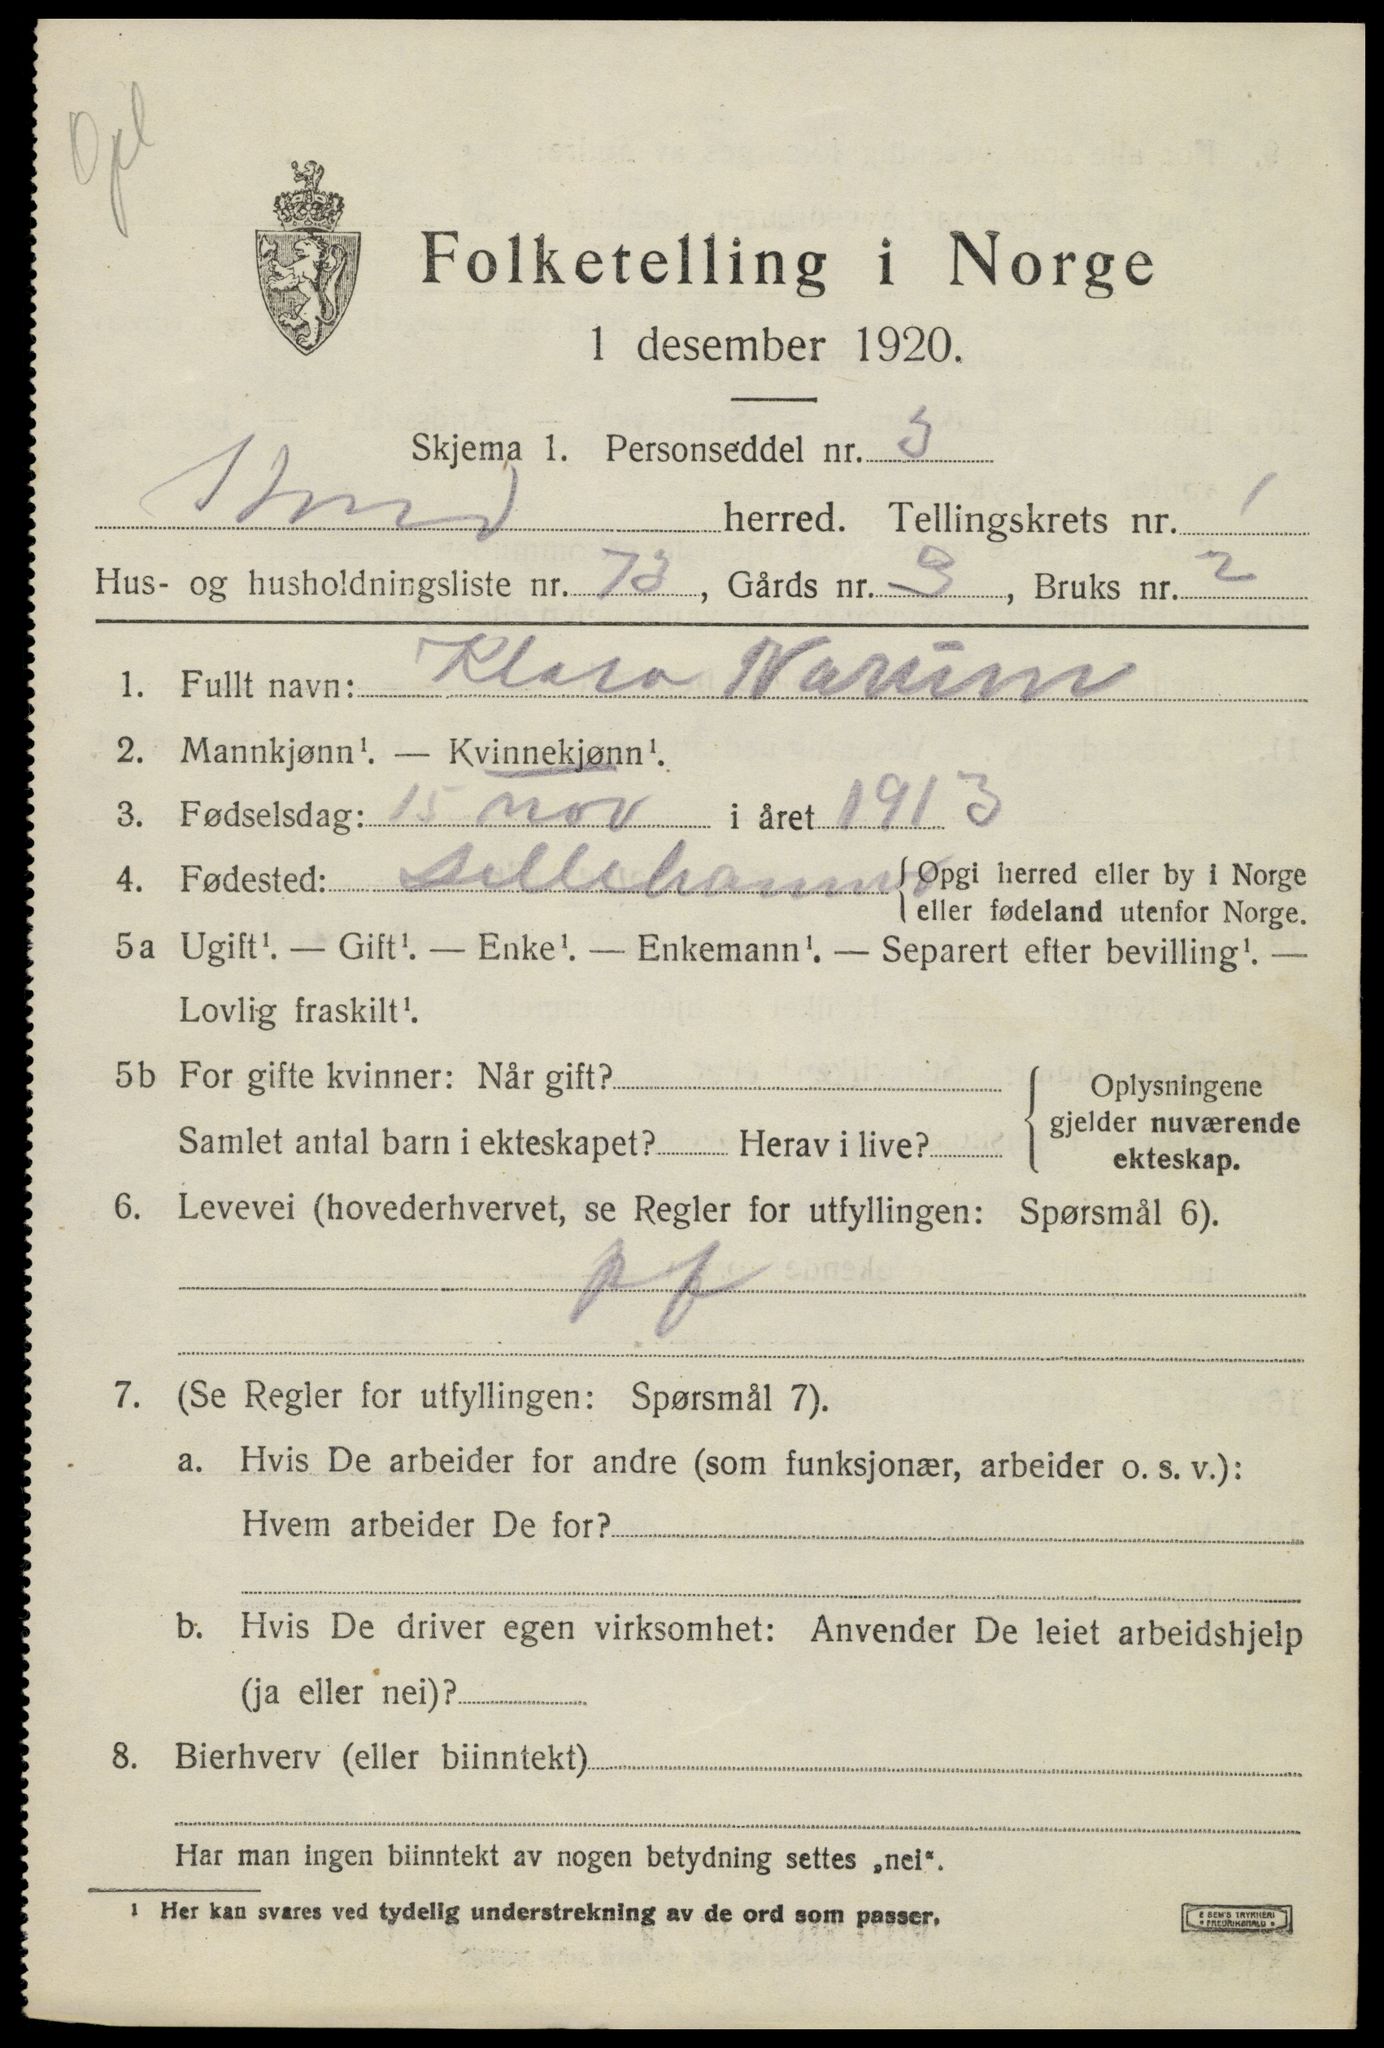 Opl
Folketelling i Norge
1 desember 1920.
Skjema 1. Personseddel nr. 3
herred. Tellingskrets nr. 1
Hus- og husholdningsliste nr. 73, Gårds nr. 9, Bruks nr. 2
1. Fullt navn: Klara Narum
2. Mannkjønn¹. — Kvinnekjønn¹.
3. Fødselsdag: 15 nov i året 1913
4. Fødested: Lillehammer {Opgi herred eller by i Norge
eller fødeland utenfor Norge.
5a Ugift¹. — Gift¹. — Enke¹. — Enkemann¹. — Separert efter bevilling¹. —
Lovlig fraskilt¹.
5b For gifte kvinner: Når gift?
Samlet antal barn i ekteskapet? Herav i live?
{Oplysningene
gjelder nuværende
ekteskap.
6. Levevei (hovederhvervet, se Regler for utfyllingen: Spørsmål 6).
pf
7. (Se Regler for utfyllingen: Spørsmål 7).
a. Hvis De arbeider for andre (som funksjonær, arbeider o. s. v.):
Hvem arbeider De for?
b. Hvis De driver egen virksomhet: Anvender De leiet arbeidshjelp
(ja eller nei)?
8. Bierhverv (eller biinntekt)
Har man ingen biinntekt av nogen betydning settes „nei“.
¹ Her kan svares ved tydelig understrekning av de ord som passer.
E SEM'S TRYKKERI
FREDRIKSHALD